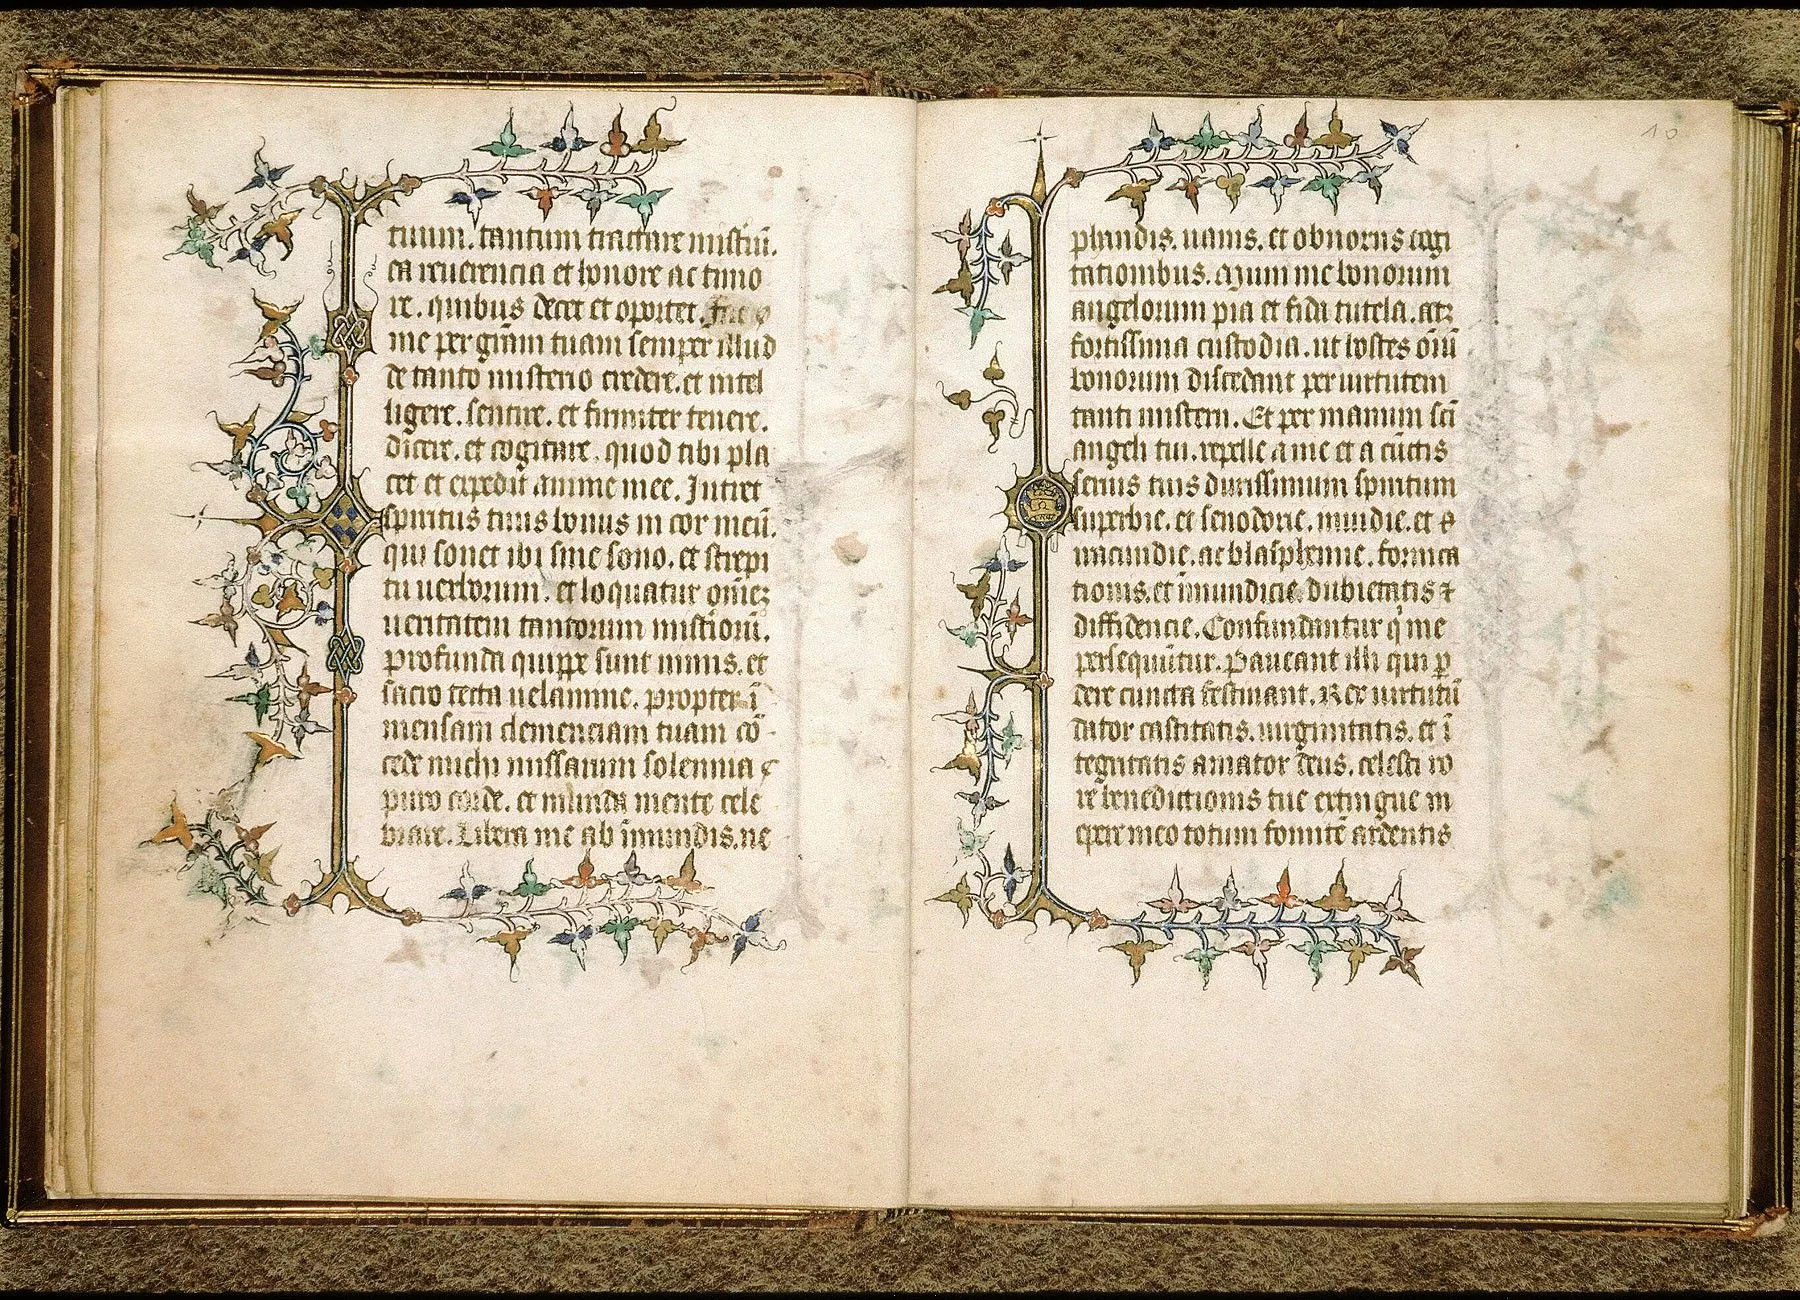 tuum. tantum tractare mistiū.
ea reuerencia et honore ac timo
re. quibus decet et oportet. fac
me per grām tuam semper illud
de tanto misterio credere. et intel
ligere. sentire. et firmiter tenere.
dicere. et cogitare. quod tibi pla
cet et expedit anime mee. Intret
spiritus tuus bonus in cor meū.
qui sonet ibi sine sono. et strepi
tu uerborum. et loquatur omēz
ueritatem tantorum mistiorū.
profunda quippe sunt nimis. et
sacro tecta uelamine. propter ī
mensam clemenciam tuam cō
cede michi missarum solennia
puro corde. et munda mente cele
brare. Libera me ab īmundis. ne
phandis. uanis. et obnoxiis cogi
tationibus. Muni me bonorum
angelorum pia et fida tutela. atz
fortissima custodia. ut hostes oīū
bonorum discedant per uirtutem
tanti misterii. Et per manum scī
angeli tui. repelle a me et a cūctis
seruis tuis durissimum spiritum
superbie. et senodorie. inuidie. et
iracundie. ac blasphemie. fornica
tionis. et īmundicie. dubietatis ⁊
diffidencie. Confundantur q̄ me
persequūtur. Paueant illi qui ꝑ
dere cuncta festinant. Rex uirtutū
dator castitatis. uirginitatis. et ī
tegritatis amator deus. celesti ro
re benedictionis tue extingue in
corpore meo totum fomitē ardentis
10